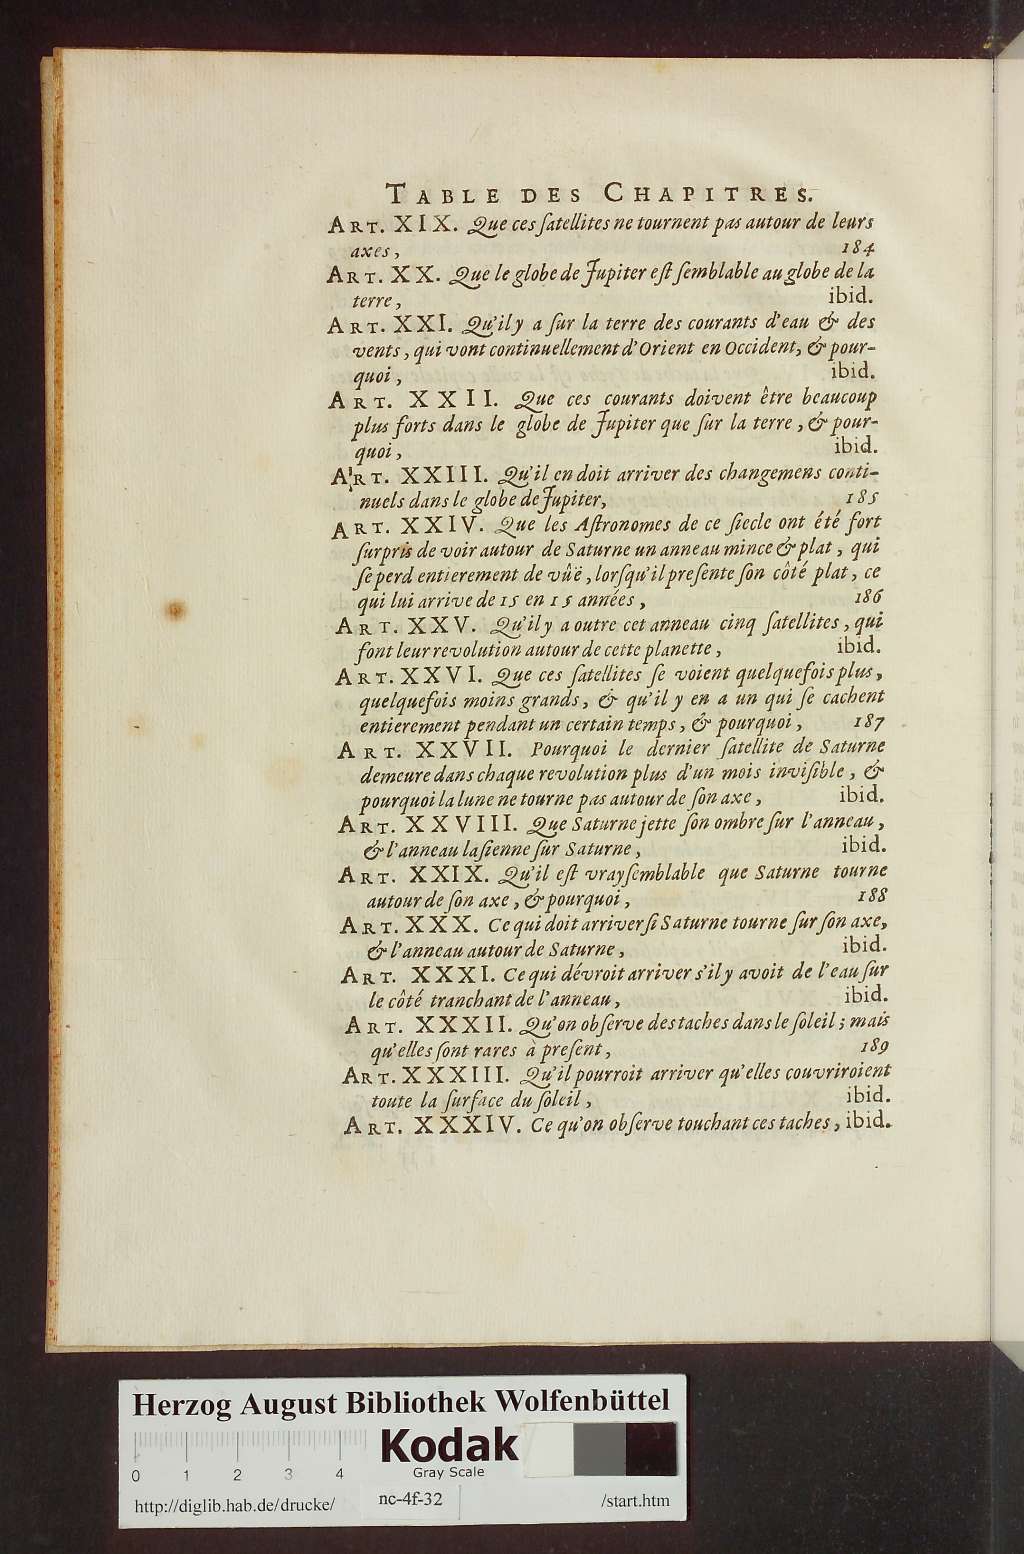 TABLE DES CHAPITRES.
ART. XIX. Que ces ſatellites ne tournent pas autour de leurs
axes, 184
ART. XX. Que le globe de Jupiter eſt ſemblable au globe de la
terre, ibid.
ART. XXI. Qu'il y a ſur la terre des courants d'eau & des
vents, qui vont continuellement d'Orient en Occident, & pour-
quoi, ibid.
ART. XXII. Que ces courants doivent être beaucoup
plus forts dans le globe de Jupiter que ſur la terre, & pour-
quoi, ibid.
ART. XXIII. Qu'il en doit arriver des changemens conti-
nuels dans le globe de Jupiter, 185
ART. XXIV. Que les Aſtronomes de ce ſiecle ont été fort
ſurpris de voir autour de Saturne un anneau mince & plat, qui
ſe perd entierement de vûë, lorſqu'il preſente ſon côté plat, ce
qui lui arrive de 15 en 15 années, 186
ART. XXV. Qu'il y a outre cet anneau cinq ſatellites, qui
font leur revolution autour de cette planette, ibid.
ART. XXVI. Que ces ſatellites ſe voient quelquefois plus,
quelquefois moins grands, & qu'il y en a un qui ſe cachent
entierement pendant un certain temps, & pourquoi, 187
ART. XXVII. Pourquoi le dernier ſatellite de Saturne
demeure dans chaque revolution plus d'un mois inviſible, &
pourquoi la lune ne tourne pas autour de ſon axe, ibid.
ART. XXVIII. Que Saturne jette ſon ombre ſur l'anneau,
& l'anneau la ſienne ſur Saturne, ibid.
ART. XXIX. Qu'il eſt vrayſemblable que Saturne tourne
autour de ſon axe, & pourquoi, 188
ART. XXX. Ce qui doit arriver ſi Saturne tourne ſur ſon axe,
& l'anneau autour de Saturne, ibid.
ART. XXXI. Ce qui dévroit arriver s'il y avoit de l'eau ſur
le côté tranchant de l'anneau, ibid.
ART. XXXII. Qu'on obſerve des taches dans le ſoleil; mais
qu'elles ſont rares à preſent, 189
ART. XXXIII. Qu'il pourroit arriver qu'elles couvriroient
toute la ſurface du ſoleil, ibid.
ART. XXXIV. Ce qu'on obſerve touchant ces taches, ibid.
Herzog August Bibliothek Wolfenbüttel
Kodak
Gray Scale
0 1 2 3 4
http://diglib.hab.de/drucke/ nc-4f-32 /start.htm